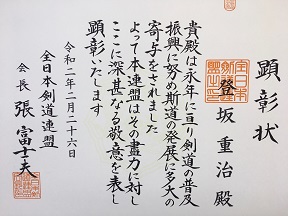 顕彰状
登坂重治殿
貴殿は永年に亘り剣道の普及
振興に努め斯道の発展に多大の
寄与をされました
よって本連盟はその盡力に対し
ここに深甚なる敬意を表し
顕彰いたします
令和二年二月二十六日
全日本剣道連盟
会長 張富士夫